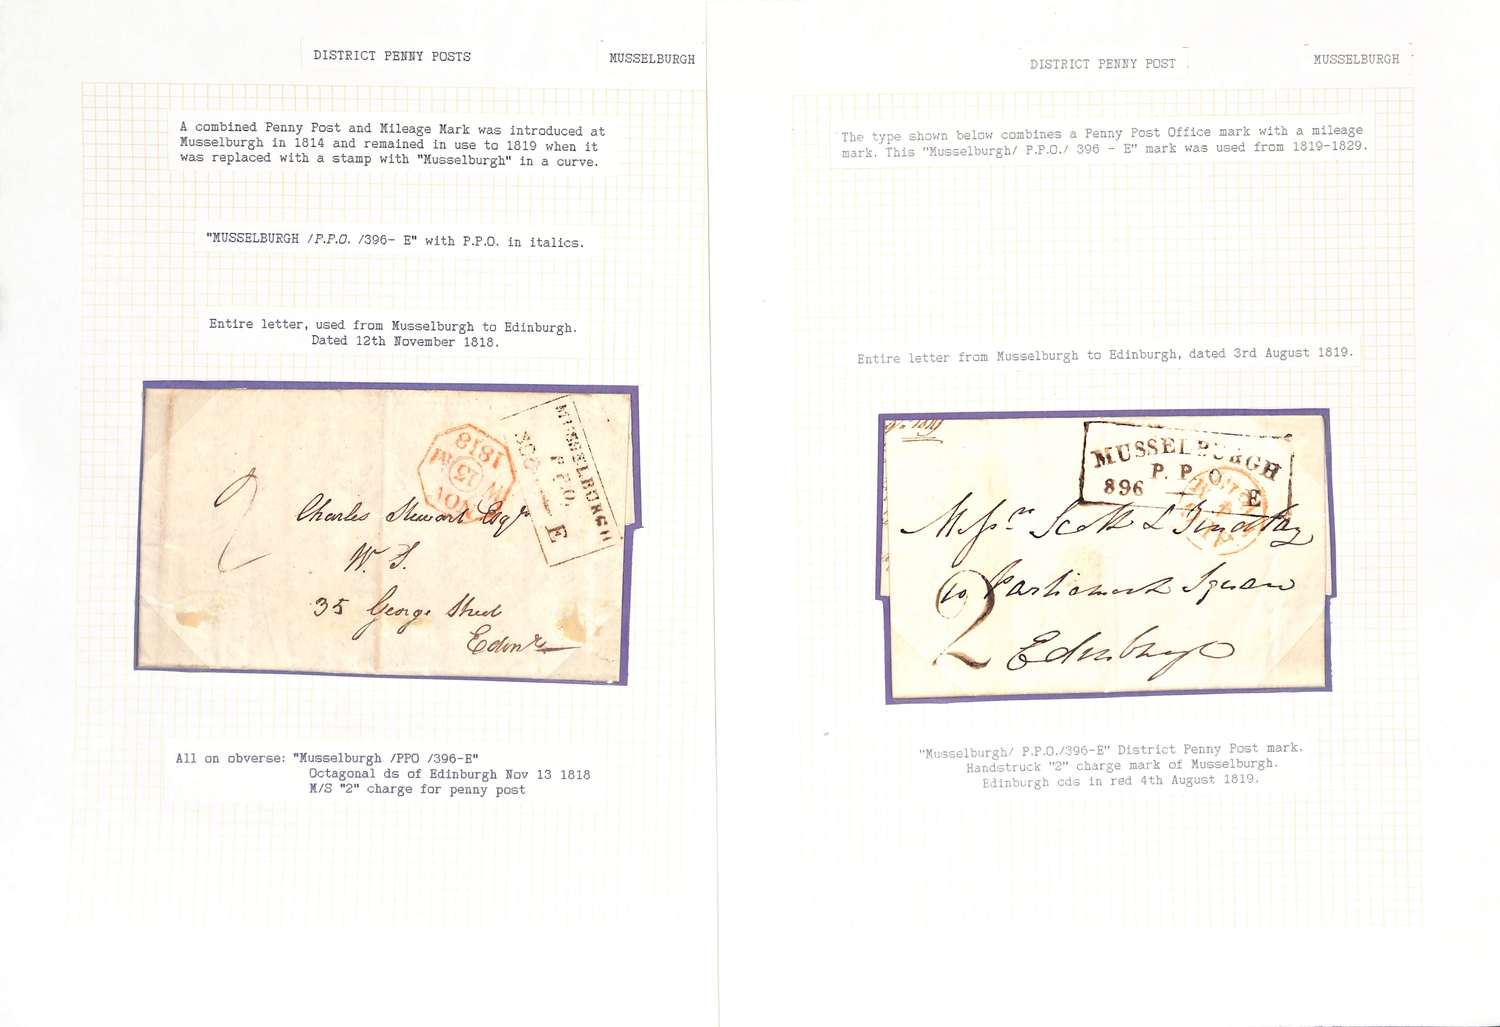 DISTRICT PENNY POSTS
MUSSELBURGH
A combined Penny Post and Mileage Mark was introduced at
Musselburgh in 1814 and remained in use to 1819 when it
was replaced with a stamp with "Musselburgh" in a curve.
"MUSSELBURGH /P.P.O. /396- E" with P.P.O. in italics.
Entire letter, used from Musselburgh to Edinburgh.
Dated 12th November 1818.
MUSSELBURGH
P.P.O.
E
1818
13
NOV
2
Charles Stewart Esqr
W. S.
35 George Street
Edinr
All on obverse: "Musselburgh /PPO /396-E"
Octagonal ds of Edinburgh Nov 13 1818
M/S "2" charge for penny post
DISTRICT PENNY POST
MUSSELBURGH
The type shown below combines a Penny Post Office mark with a mileage
mark. This "Musselburgh/ P.P.O./ 396 - E" mark was used from 1819-1829.
Entire letter from Musselburgh to Edinburgh, dated 3rd August 1819.
MUSSELBURGH
P. P. O.
896 — E
Messrs Scott &
10 Parliament Square
2
Edinburgh
"Musselburgh/ P.P.O./396-E" District Penny Post mark.
Handstruck "2" charge mark of Musselburgh.
Edinburgh cds in red 4th August 1819.